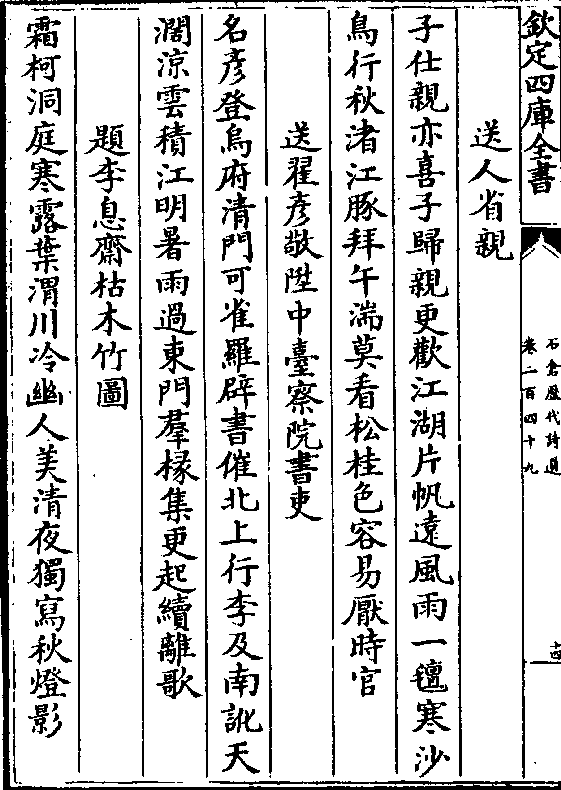 欽定四庫全書
石倉歷代詩選
卷二百四十九
十四
送人省親
子仕親亦喜子歸親更歡江湖片帆遠風雨一氊寒沙
鳥行秋渚江豚拜午湍莫看松桂色容易厭時官
送翟彦敬陞中臺察院書吏
名彦登烏府清門可雀羅辟書催北上行李及南訛天
濶凉雲積江明暑雨過東門羣椽集更起續離歌
題李息齋枯木竹圖
霜柯洞庭寒露葉渭川冷幽人美清夜獨寫秋燈影